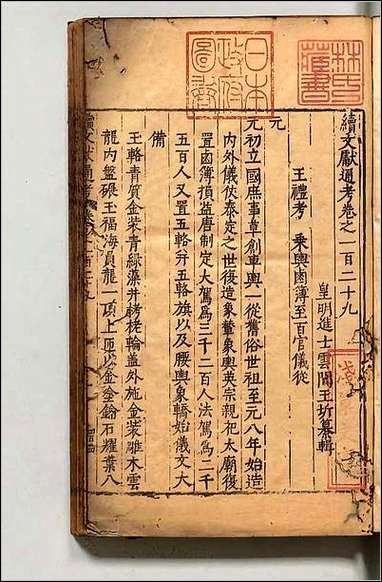 續文獻通考卷之一百二十九
皇明進士雲間王圻纂輯
王禮考 乘輿鹵簿至百官儀從
元
元初立國庶事草創車輿一從舊俗世祖至元八年始造
內外儀仗泰定之世後造象輦象輿英宗親祀太廟復
置鹵簿損益唐制定大駕為三千二百人法駕為二千
五百人又置五輅并五輅旗以及腰輿象轎始儀文大
備
玉輅青質金裝青綠藻井栲栳輪蓋外施金裝雕木雲
龍內盤碾玉福海員龍一頂上匝以金塗鍮石耀葉八
日本
政府
圖書
林氏
藏書